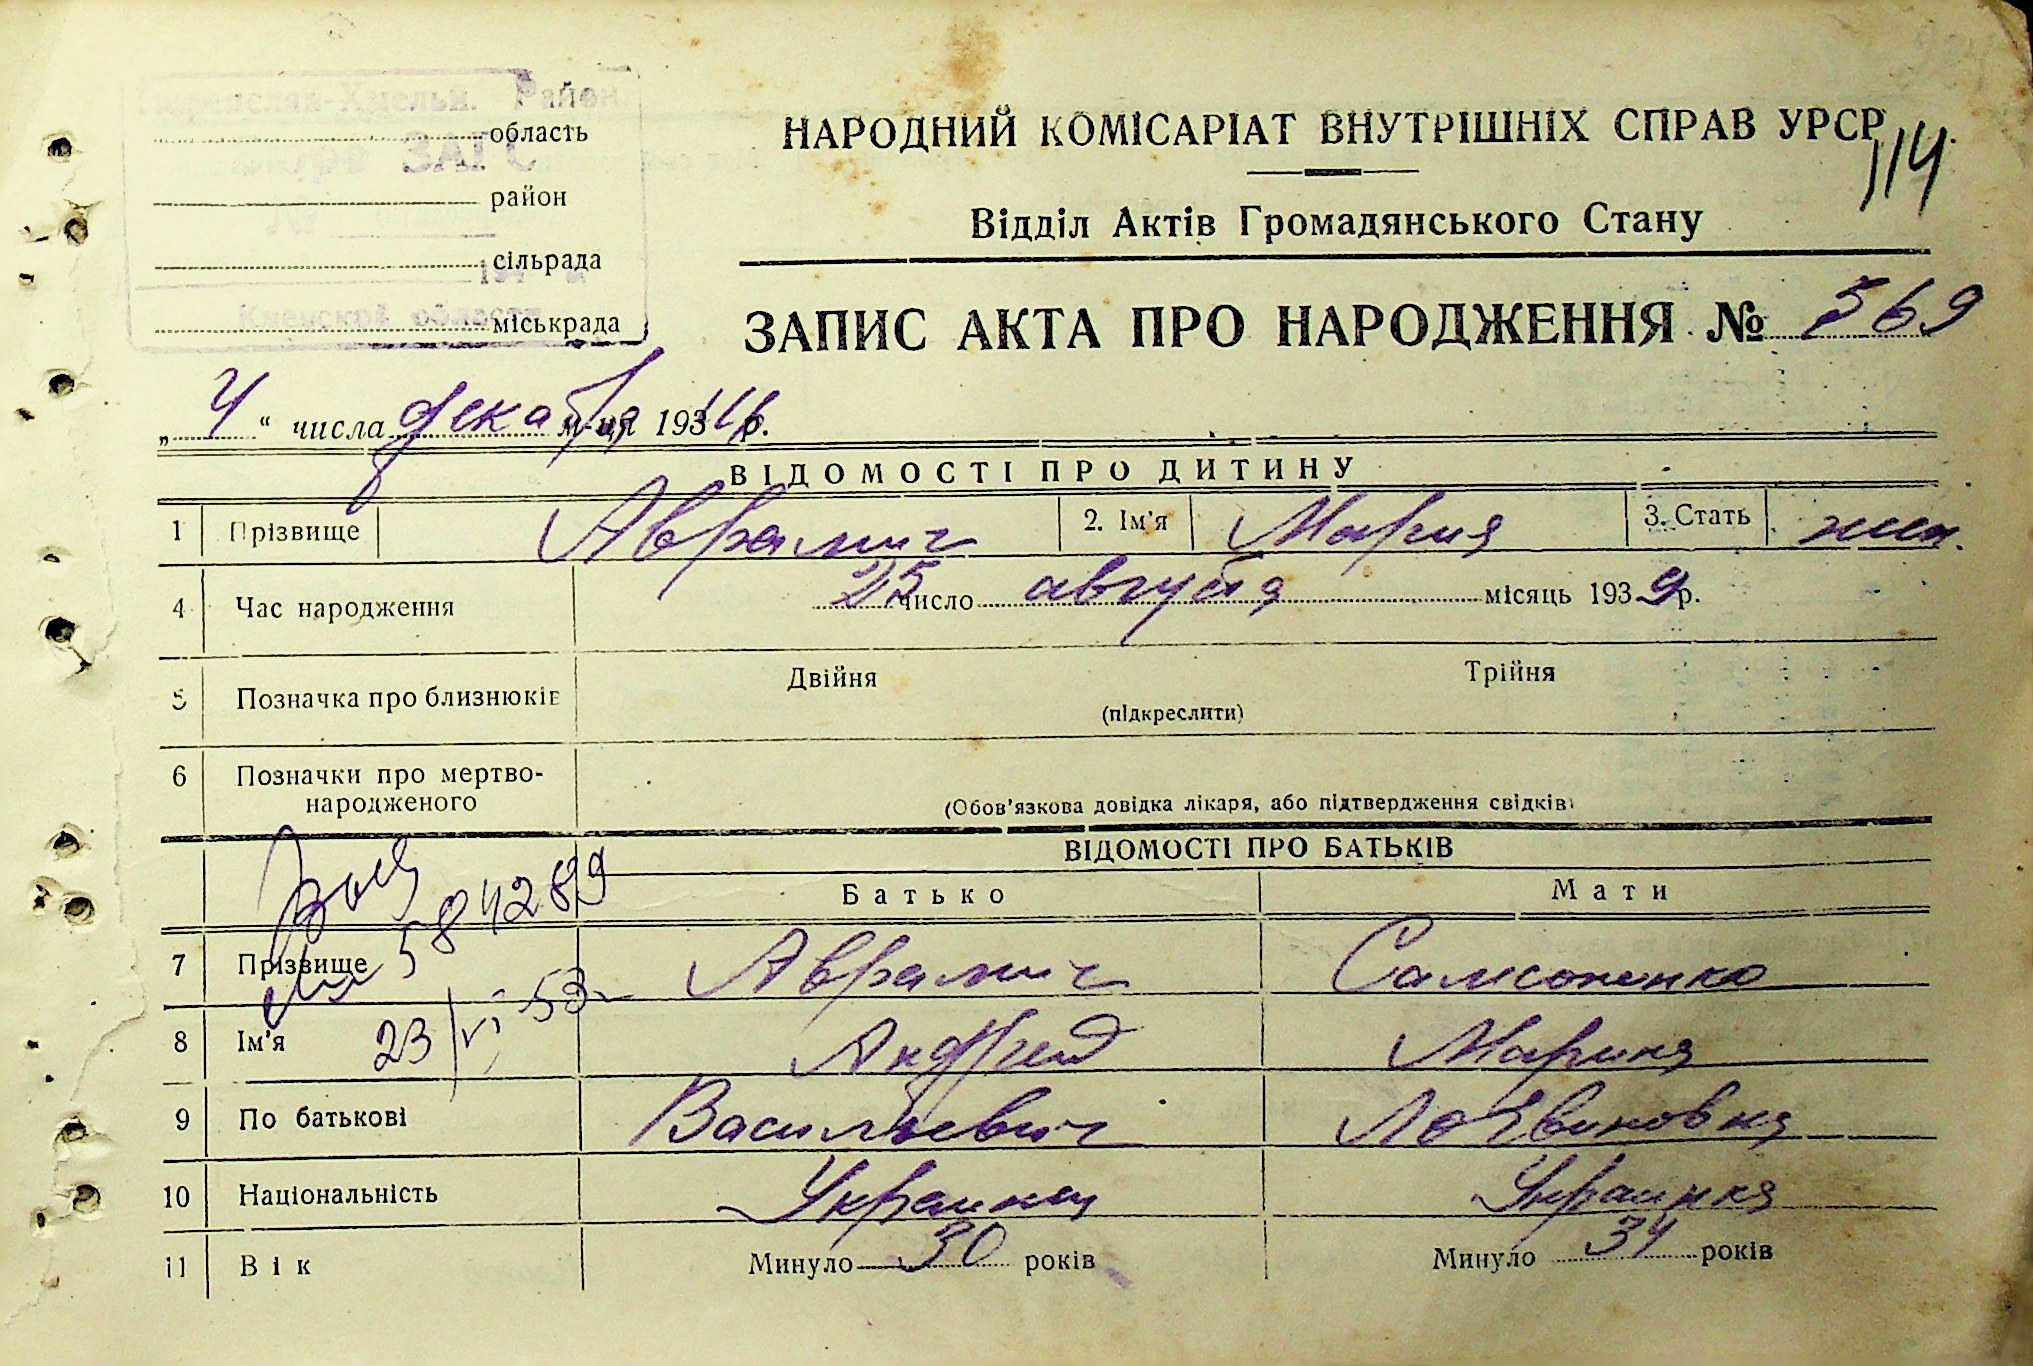 Район.
область
ЗАГС
район
сільрада
Киевской области
міськрада
НАРОДНИЙ КОМІСАРІАТ ВНУТРІШНІХ СПРАВ УРСР
114
Відділ Актів Громадянського Стану
ЗАПИС АКТА ПРО НАРОДЖЕННЯ № 569
„ 4 “ числа декабря м-ця 193 р.
ВІДОМОСТІ ПРО ДИТИНУ
1 Прізвище Аврамич 2. Ім’я Мария 3. Стать жен.
4 Час народження 25 число августа місяць 1939 р.
5 Позначка про близнюків Двійня Трійня
(підкреслити)
6 Позначки про мертво-
народженого
(Обов’язкова довідка лікаря, або підтвердження свідків)
ВІДОМОСТІ ПРО БАТЬКІВ
Батько Мати
584289
7 Прізвище Аврамич Самсоненко
23/VI-53
8 Ім’я Андрей Марина
9 По батькові Васильевич Логвиновна
10 Національність Украинец Украинка
11 Вік Минуло 30 років Минуло 34 років